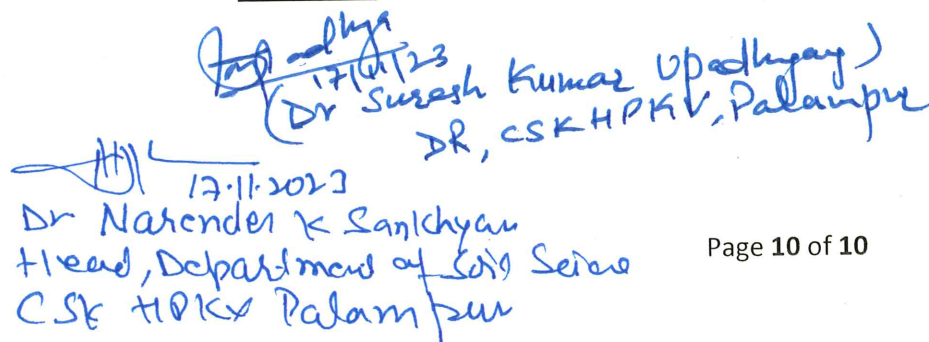 Upadhya
17/11/23
(Dr Suresh Kumar Upadhyay)
DR, CSKHPKV, Palampur
17.11.2023
Dr Narender K Sankhyan
Head, Department of Soil Science
CSK HPKV Palampur
Page 10 of 10